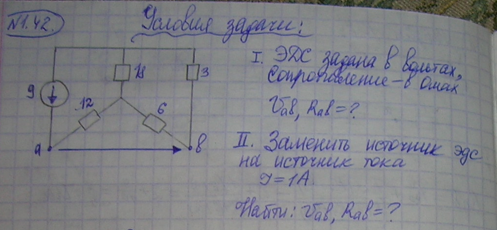 №1.42. Условия задачи:
I. ЭДС задана в вольтах,
сопротивление - в Омах
Vab, Rab = ?
II. Заменить источник эдс
на источник тока
J = 1A
Найти: Vab, Rab = ?
9
18
3
12
6
a
b